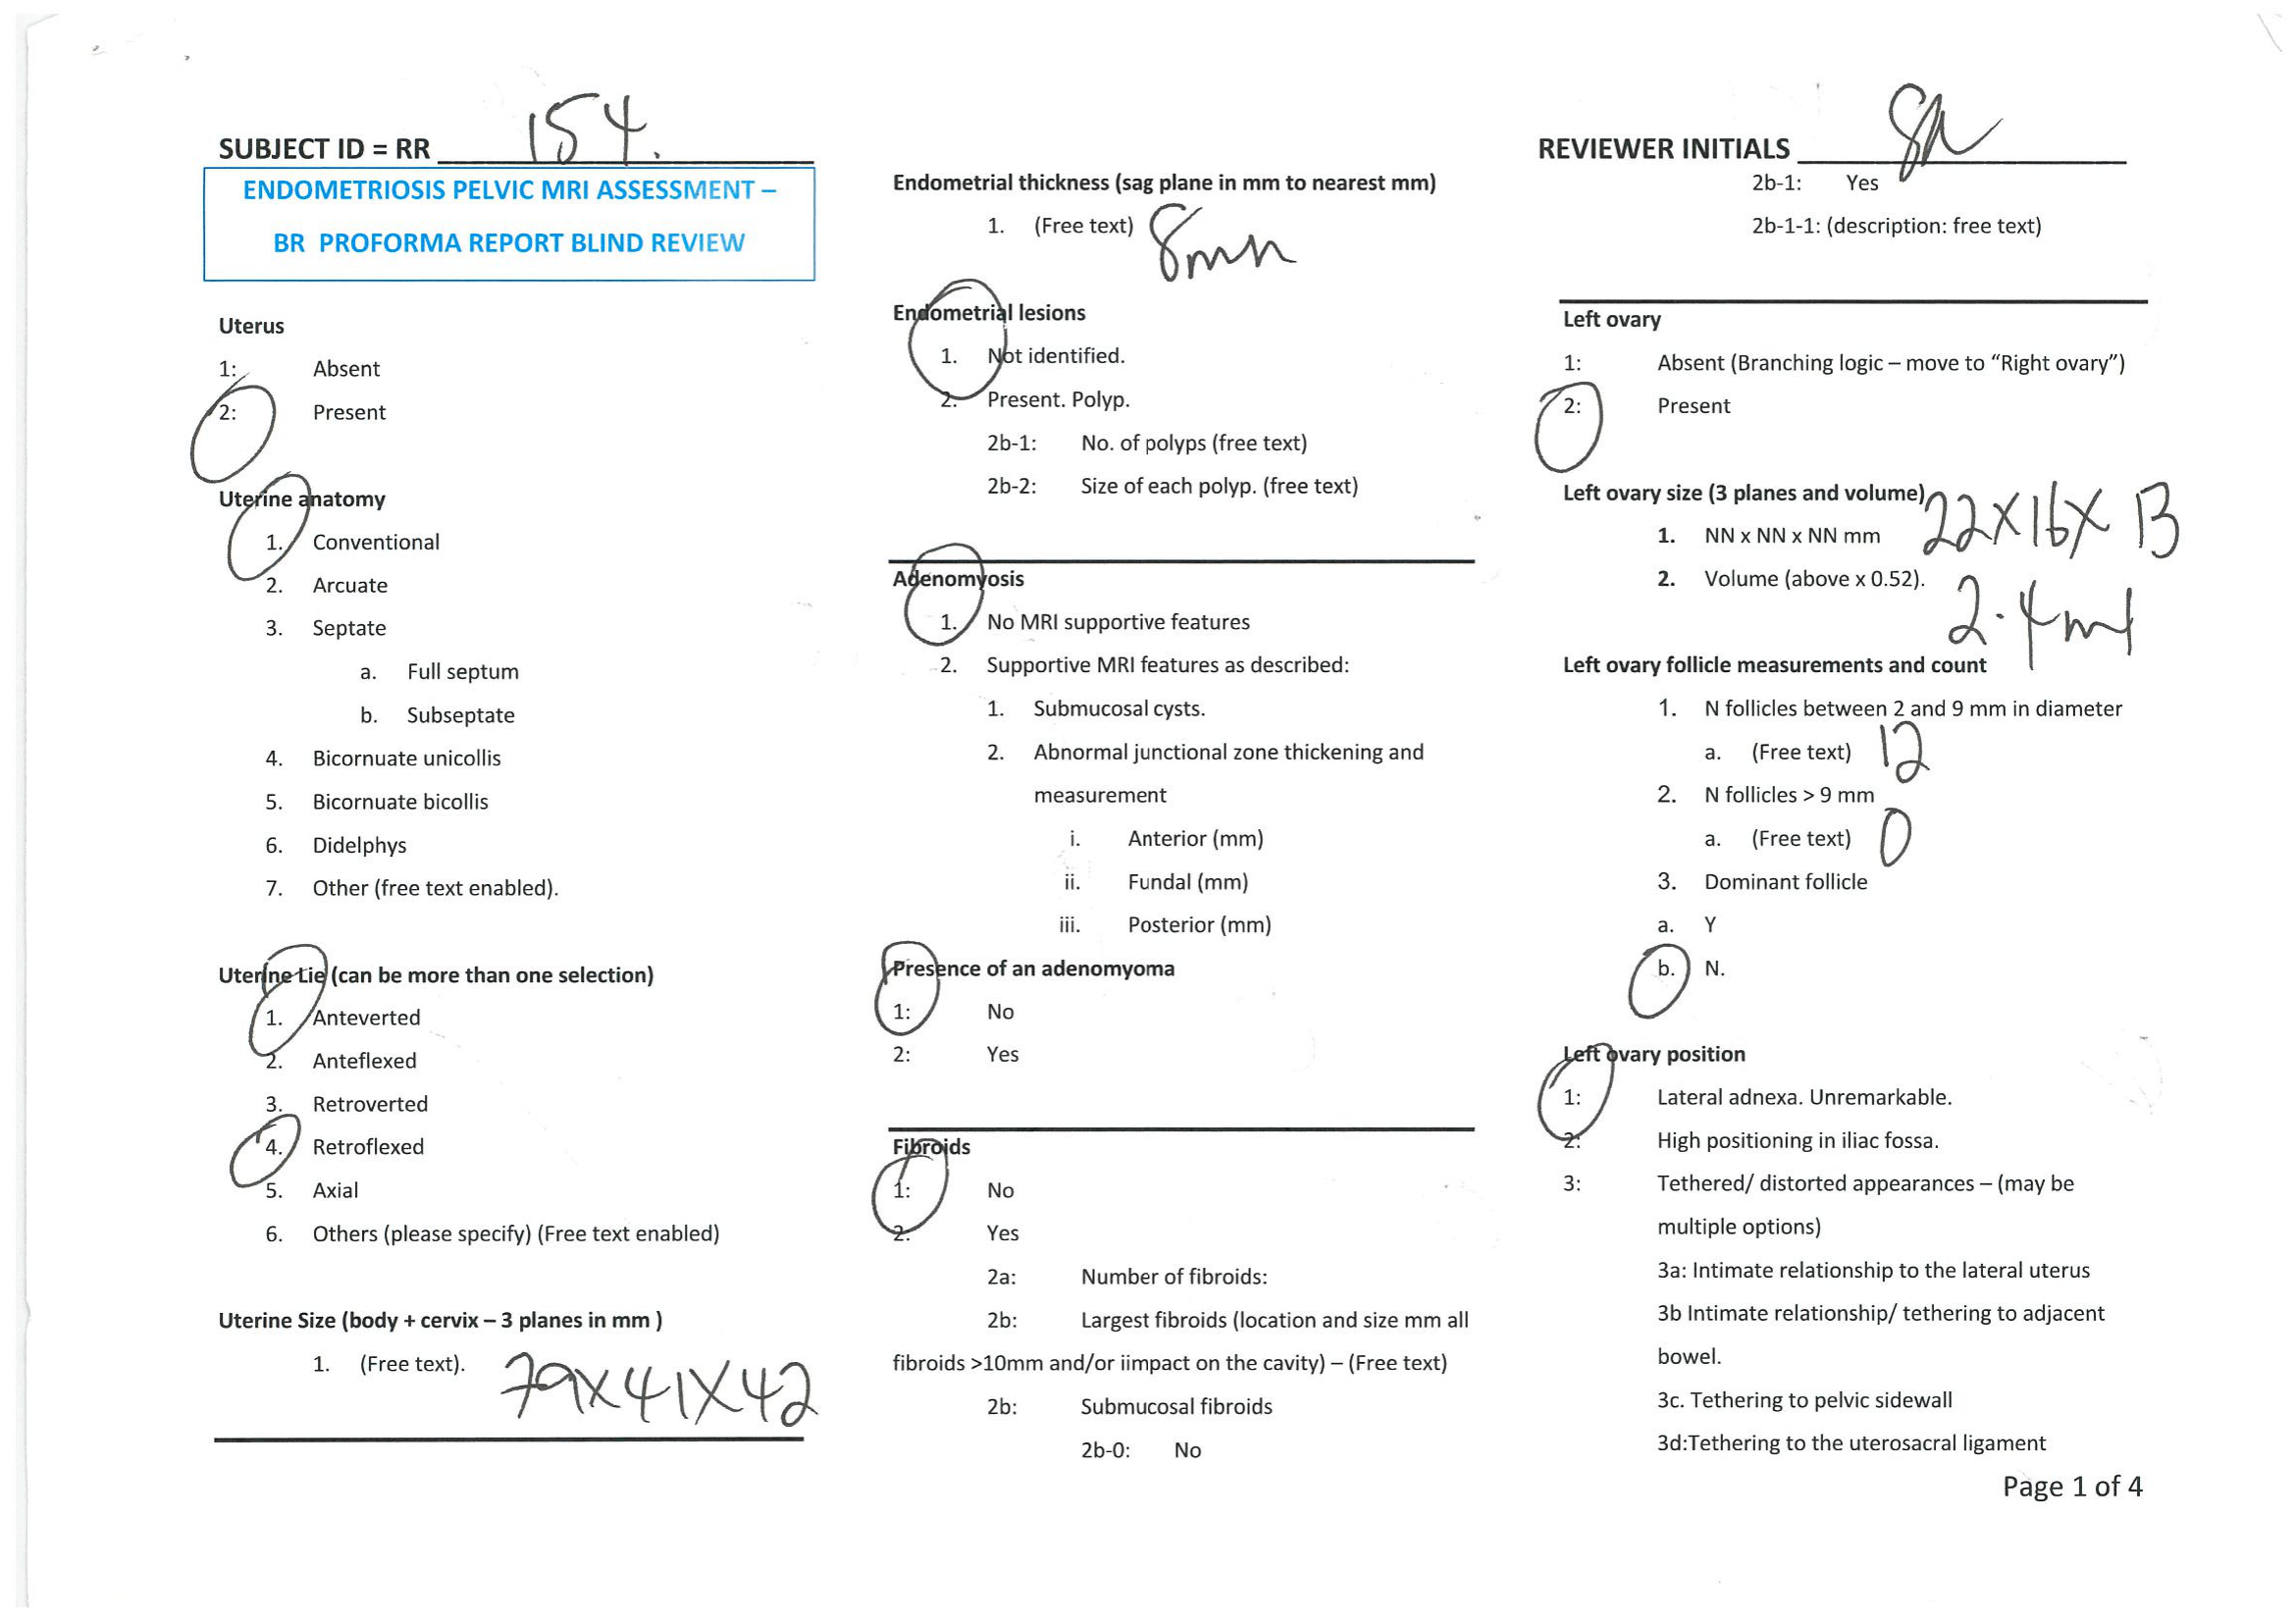 SUBJECT ID = RR 154.
ENDOMETRIOSIS PELVIC MRI ASSESSMENT –
BR PROFORMA REPORT BLIND REVIEW
Uterus
1: Absent
2: Present
Uterine anatomy
1. Conventional
2. Arcuate
3. Septate
a. Full septum
b. Subseptate
4. Bicornuate unicollis
5. Bicornuate bicollis
6. Didelphys
7. Other (free text enabled).
Uterine Lie (can be more than one selection)
1. Anteverted
2. Anteflexed
3. Retroverted
4. Retroflexed
5. Axial
6. Others (please specify) (Free text enabled)
Uterine Size (body + cervix – 3 planes in mm )
1. (Free text). 79x41x42
Endometrial thickness (sag plane in mm to nearest mm)
1. (Free text) 8mm
Endometrial lesions
1. Not identified.
2. Present. Polyp.
2b-1: No. of polyps (free text)
2b-2: Size of each polyp. (free text)
Adenomyosis
1. No MRI supportive features
2. Supportive MRI features as described:
1. Submucosal cysts.
2. Abnormal junctional zone thickening and
measurement
i. Anterior (mm)
ii. Fundal (mm)
iii. Posterior (mm)
Presence of an adenomyoma
1: No
2: Yes
Fibroids
1: No
2: Yes
2a: Number of fibroids:
2b: Largest fibroids (location and size mm all
fibroids >10mm and/or iimpact on the cavity) – (Free text)
2b: Submucosal fibroids
2b-0: No
REVIEWER INITIALS
2b-1: Yes
2b-1-1: (description: free text)
Left ovary
1: Absent (Branching logic – move to “Right ovary”)
2: Present
Left ovary size (3 planes and volume)
1. NN x NN x NN mm 22x16x13
2. Volume (above x 0.52). 2.4ml
Left ovary follicle measurements and count
1. N follicles between 2 and 9 mm in diameter
a. (Free text) 12
2. N follicles > 9 mm
a. (Free text) 0
3. Dominant follicle
a. Y
b. N.
Left ovary position
1: Lateral adnexa. Unremarkable.
2: High positioning in iliac fossa.
3: Tethered/ distorted appearances – (may be
multiple options)
3a: Intimate relationship to the lateral uterus
3b Intimate relationship/ tethering to adjacent
bowel.
3c. Tethering to pelvic sidewall
3d:Tethering to the uterosacral ligament
Page 1 of 4